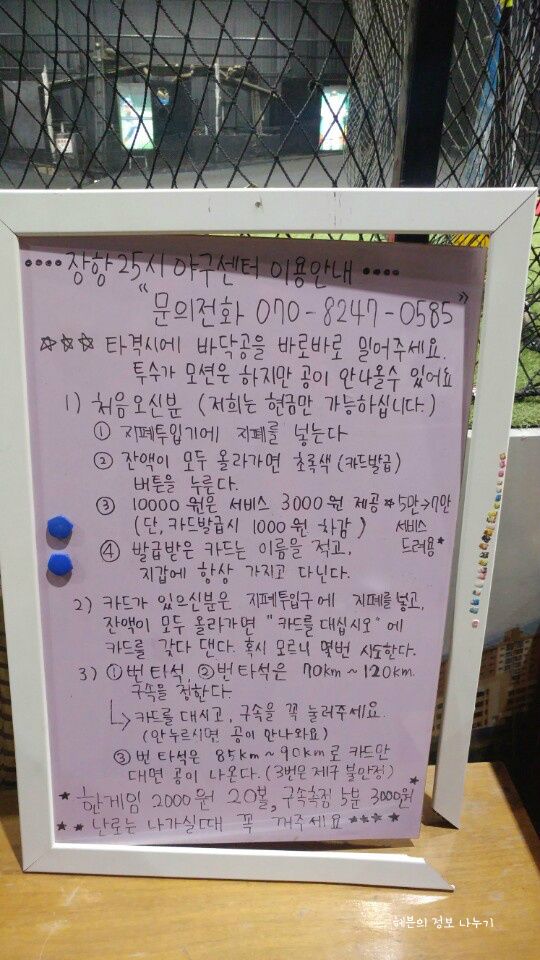 장항 25시 야구센터 이용안내
"문의전화 070-8247-0585"
☆☆☆ 타격시에 바닥공을 바로바로 밀어주세요.
투수가 모션은 하지만 공이 안나올수 있어요
1) 처음오신분 (저희는 현금만 가능하십니다.)
① 지폐투입기에 지폐를 넣는다
② 잔액이 모두 올라가면 초록색 (카드발급)
버튼을 누른다.
③ 10000 원은 서비스 3000 원 제공 * 5만→7만
(단, 카드발급시 1000 원 차감) 서비스
④ 발급받은 카드는 이름을 적고, 드려용*
지갑에 항상 가지고 다닌다.
2) 카드가 있으신분은 지폐투입구에 지폐를 넣고,
잔액이 모두 올라가면 "카드를 대십시오"에
카드를 갖다 댄다. 혹시 모르니 몇번 시도한다.
3) ①번 타석, ②번 타석은 70km ~ 120km.
구속을 정한다.
↳ 카드를 대시고, 구속을 꼭 눌러주세요.
(안누르시면 공이 안나와요)
③번 타석은 85km ~ 90km로 카드만
대면 공이 나온다. (3번은 제구 불안정)
★ 한게임 2000원 20볼, 구속측정 5분 3000원 ★
★★ 난로는 나가실때 꼭 꺼주세요 ★★★★
헤븐의 정보 나누기